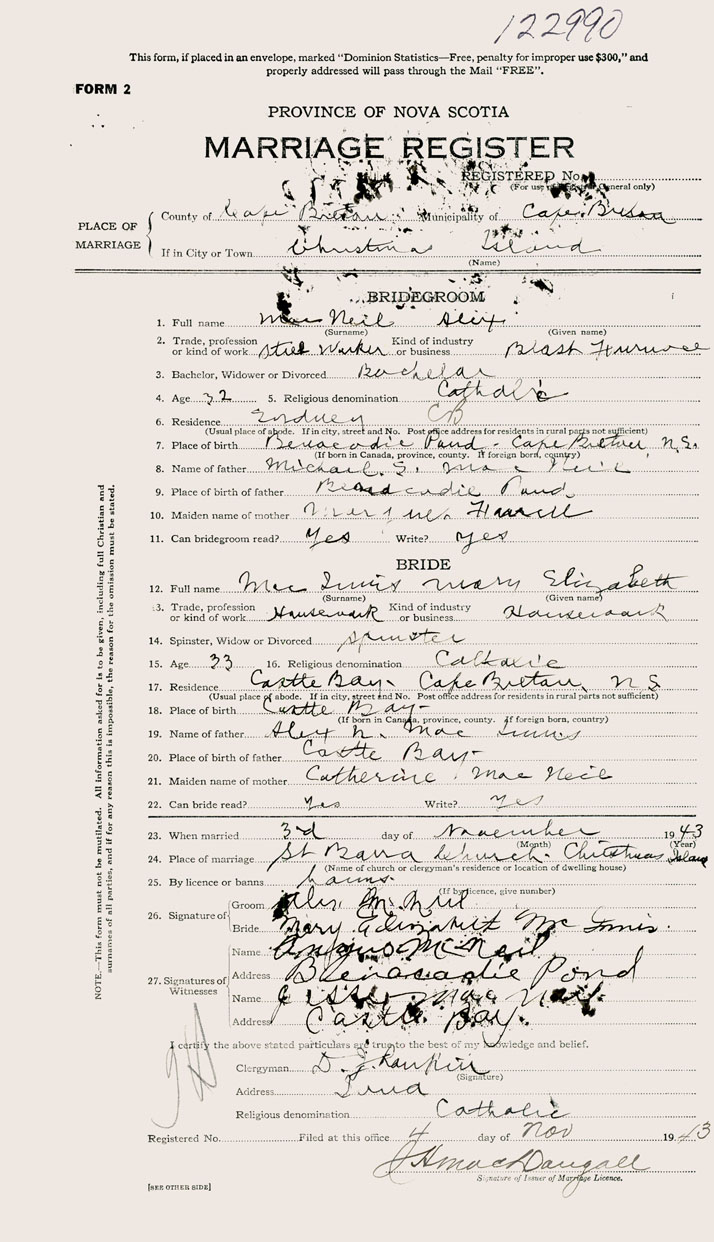 122990
This form, if placed in an envelope, marked "Dominion Statistics—Free, penalty for improper use $300," and
properly addressed will pass through the Mail "FREE".
FORM 2
PROVINCE OF NOVA SCOTIA
MARRIAGE REGISTER
REGISTERED No.
(For use of Registrar General only)
PLACE OF MARRIAGE
County of Cape Breton Municipality of Cape Breton
If in City or Town Christmas Island
(Name)
BRIDEGROOM
1. Full name MacNeil Alix
(Surname) (Given name)
2. Trade, profession or kind of work Steel Worker Kind of industry or business Blast Furnace
3. Bachelor, Widower or Divorced Bachelar
4. Age 32 5. Religious denomination Catholic
6. Residence Sydney CB
(Usual place of abode. If in city, street and No. Post office address for residents in rural parts not sufficient)
7. Place of birth Benacadie Pond - Cape Breton N.S.
(If born in Canada, province, county. If foreign born, country)
8. Name of father Michael S. MacNeil
9. Place of birth of father Benacadie Pond
10. Maiden name of mother
11. Can bridegroom read? Yes Write? Yes
BRIDE
12. Full name MacInnis Mary Elizabeth
(Surname) (Given name)
13. Trade, profession or kind of work Housework Kind of industry or business Housework
14. Spinster, Widow or Divorced Spinster
15. Age 33 16. Religious denomination Catholic
17. Residence Castle Bay - Cape Breton, N S
(Usual place of abode. If in city, street and No. Post office address for residents in rural parts not sufficient)
18. Place of birth Castle Bay -
(If born in Canada, province, county. If foreign born, country)
19. Name of father Alex N. MacInnis
20. Place of birth of father Castle Bay -
21. Maiden name of mother Catherine MacNeil
22. Can bride read? Yes Write? Yes
23. When married 3rd day of November 1943
(Month) (Year)
24. Place of marriage St Barra Church - Christmas Island
(Name of church or clergyman's residence or location of dwelling house)
25. By licence or banns banns
(If by licence, give number)
26. Signature of
Groom Alex McNeil
Bride Mary Elizabeth McInnis.
27. Signatures of Witnesses
Name Angus McNeil
Address Benacadie Pond
Name MacNeil
Address Castle Bay.
I certify the above stated particulars are true to the best of my knowledge and belief.
Clergyman D. J. Rankin
(Signature)
Address Iona
Religious denomination Catholic
Registered No. Filed at this office 4 day of Nov 1943
MacDougall
Signature of Issuer of Marriage Licence.
[SEE OTHER SIDE]
NOTE.—This form must not be mutilated. All information asked for is to be given, including full Christian and
surnames of all parties, and if for any reason this is impossible, the reason for the omission must be stated.